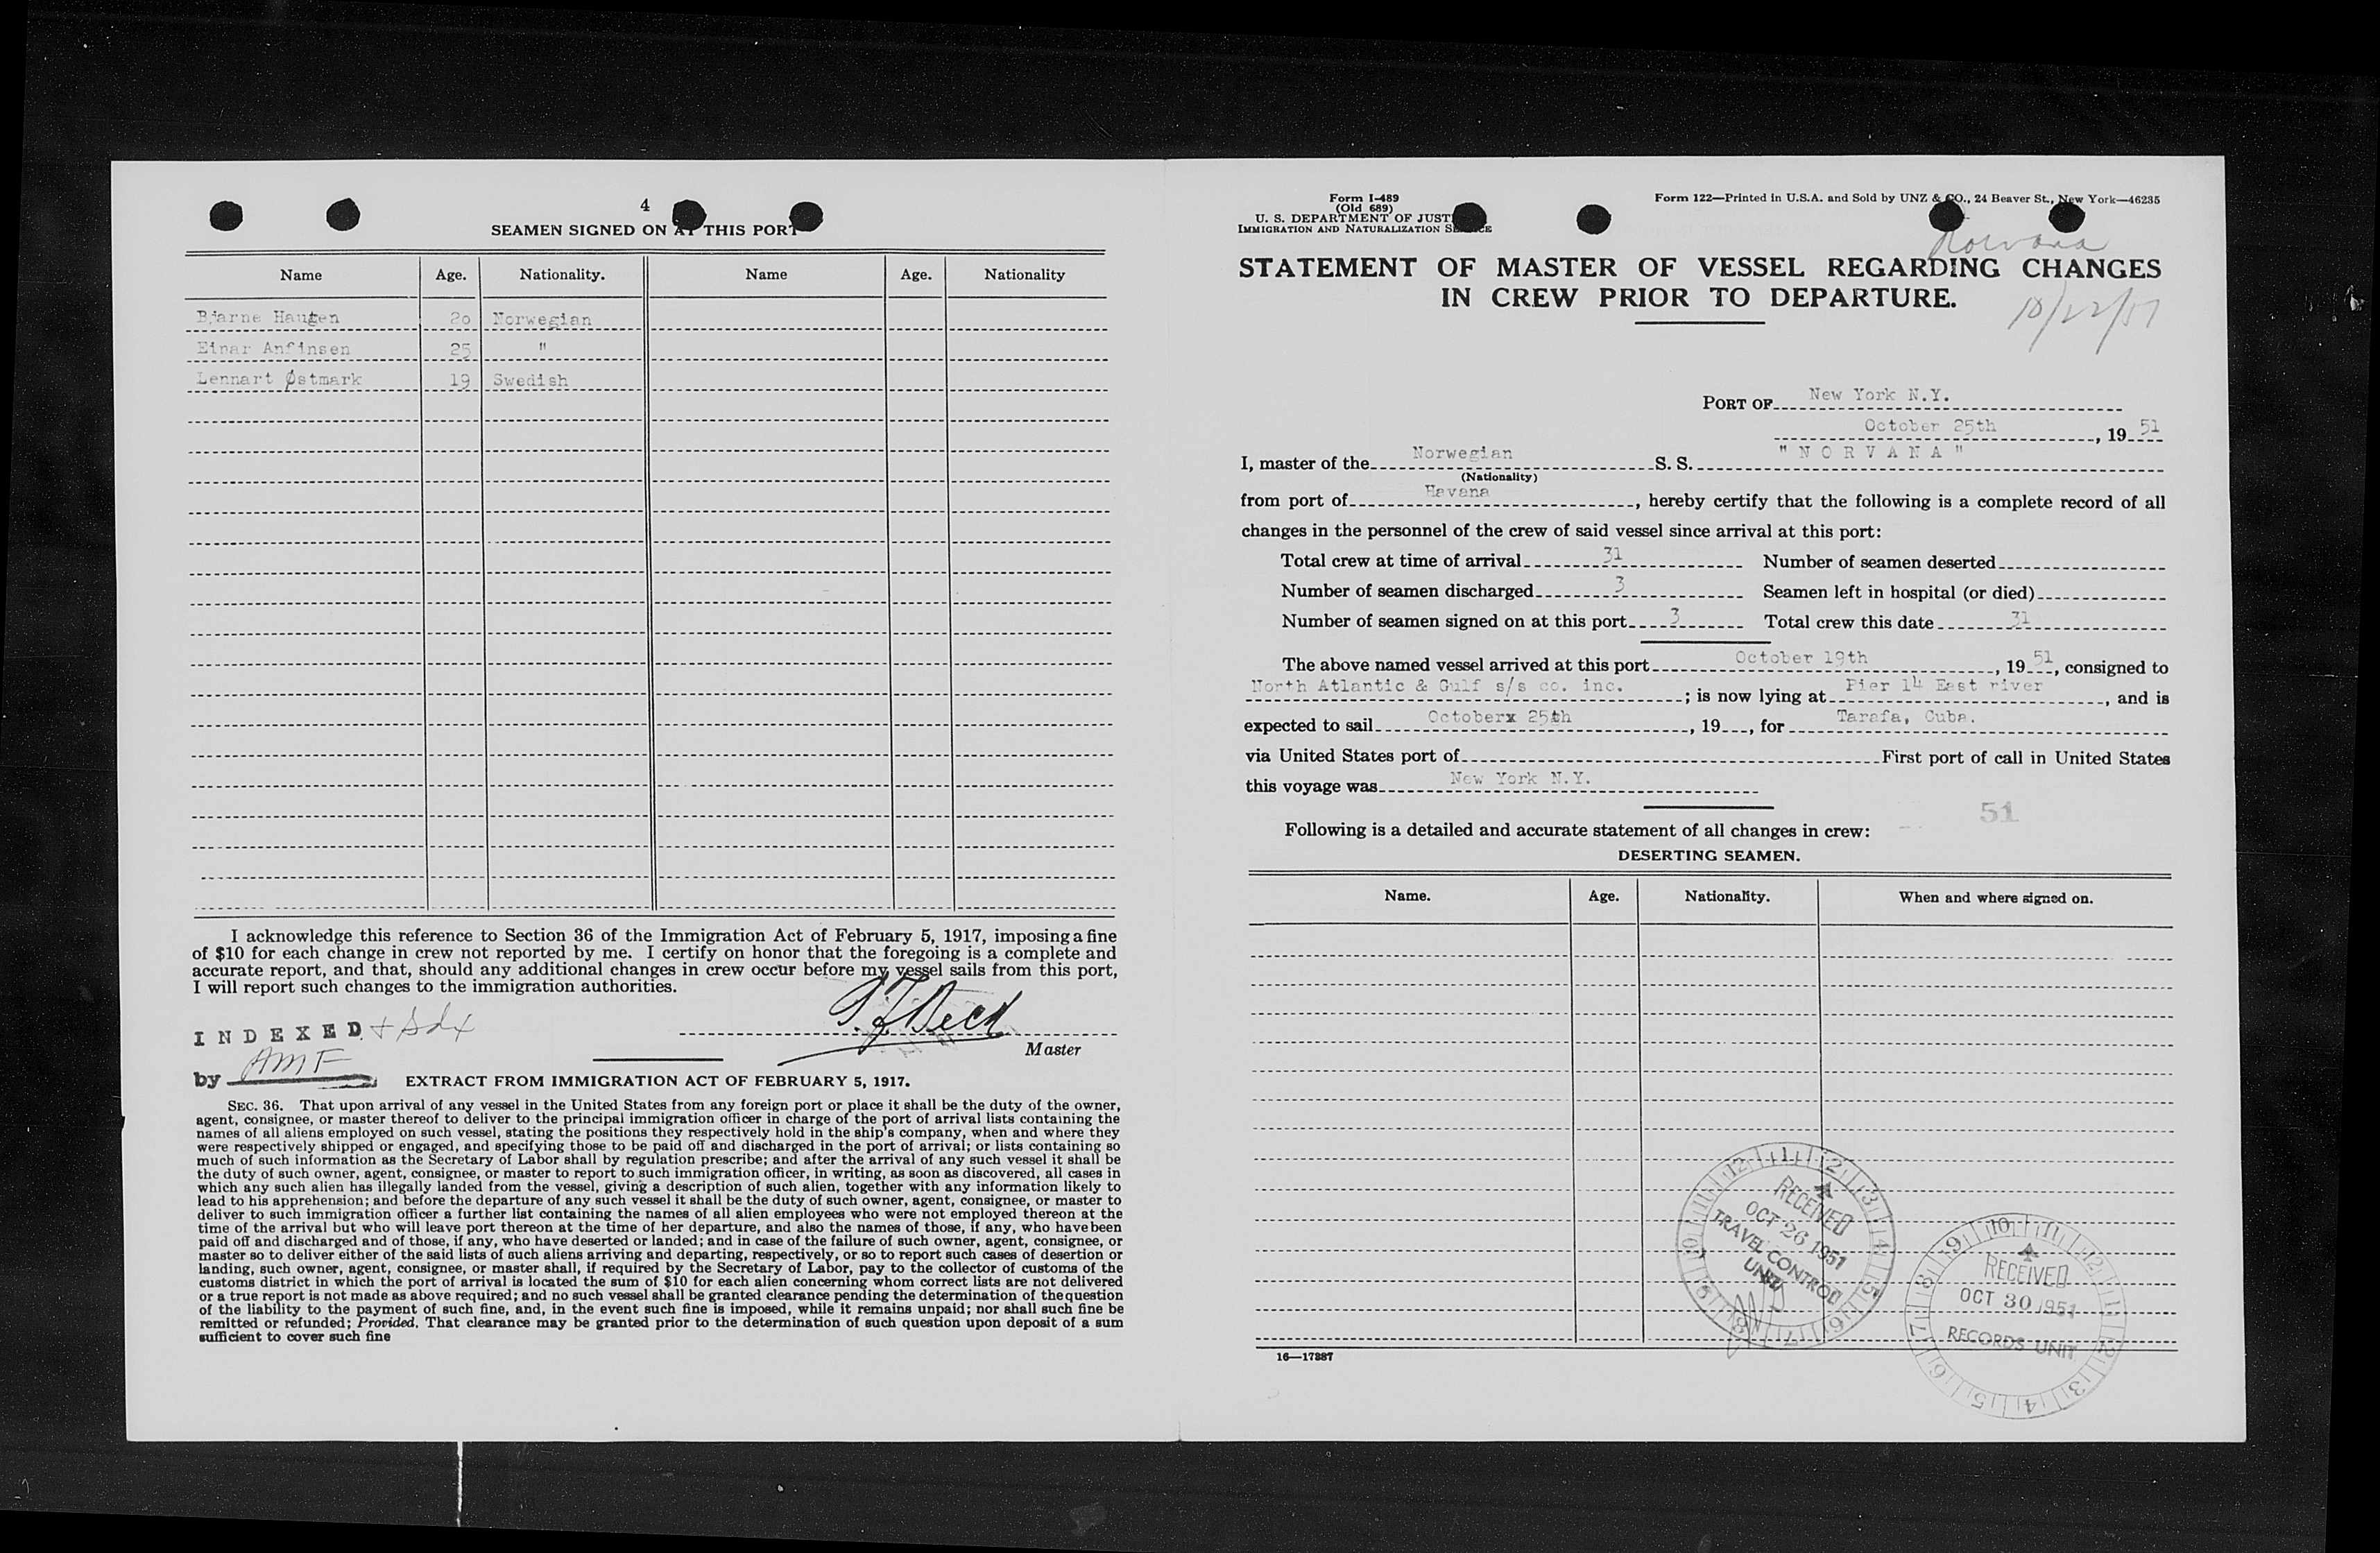 4
SEAMEN SIGNED ON AT THIS PORT
Name Age. Nationality. Name Age. Nationality
Bjarne Haugen 20 Norwegian
Einar Anfinsen 25 "
Lennart Østmark 19 Swedish
I acknowledge this reference to Section 36 of the Immigration Act of February 5, 1917, imposing a fine
of $10 for each change in crew not reported by me. I certify on honor that the foregoing is a complete and
accurate report, and that, should any additional changes in crew occur before my vessel sails from this port,
I will report such changes to the immigration authorities.
INDEXED
Master
by AMF
EXTRACT FROM IMMIGRATION ACT OF FEBRUARY 5, 1917.
SEC. 36. That upon arrival of any vessel in the United States from any foreign port or place it shall be the duty of the owner,
agent, consignee, or master thereof to deliver to the principal immigration officer in charge of the port of arrival lists containing the
names of all aliens employed on such vessel, stating the positions they respectively hold in the ship's company, when and where they
were respectively shipped or engaged, and specifying those to be paid off and discharged in the port of arrival; or lists containing so
much of such information as the Secretary of Labor shall by regulation prescribe; and after the arrival of any such vessel it shall be
the duty of such owner, agent, consignee, or master to report to such immigration officer, in writing, as soon as discovered, all cases in
which any such alien has illegally landed from the vessel, giving a description of such alien, together with any information likely to
lead to his apprehension; and before the departure of any such vessel it shall be the duty of such owner, agent, consignee, or master to
deliver to such immigration officer a further list containing the names of all alien employees who were not employed thereon at the
time of the arrival but who will leave port thereon at the time of her departure, and also the names of those, if any, who have been
paid off and discharged and of those, if any, who have deserted or landed; and in case of the failure of such owner, agent, consignee, or
master so to deliver either of the said lists of such aliens arriving and departing, respectively, or so to report such cases of desertion or
landing, such owner, agent, consignee, or master shall, if required by the Secretary of Labor, pay to the collector of customs of the
customs district in which the port of arrival is located the sum of $10 for each alien concerning whom correct lists are not delivered
or a true report is not made as above required; and no such vessel shall be granted clearance pending the determination of the question
of the liability to the payment of such fine, and, in the event such fine is imposed, while it remains unpaid; nor shall such fine be
remitted or refunded; Provided, That clearance may be granted prior to the determination of such question upon deposit of a sum
sufficient to cover such fine
Form I-489
(Old 689)
U. S. DEPARTMENT OF JUSTICE
IMMIGRATION AND NATURALIZATION SERVICE
Form 122—Printed in U.S.A. and Sold by UNZ & CO., 24 Beaver St., New York—46235
Norvana
STATEMENT OF MASTER OF VESSEL REGARDING CHANGES
IN CREW PRIOR TO DEPARTURE.
10/22/51
PORT OF New York N.Y.
October 25th, 19 51
I, master of the Norwegian S. S. "NORVANA"
(Nationality)
from port of Havana, hereby certify that the following is a complete record of all
changes in the personnel of the crew of said vessel since arrival at this port:
Total crew at time of arrival 31 Number of seamen deserted
Number of seamen discharged 3 Seamen left in hospital (or died)
Number of seamen signed on at this port 3 Total crew this date 31
The above named vessel arrived at this port October 19th, 19 51, consigned to
North Atlantic & Gulf s/s co. inc.; is now lying at Pier 14 East river, and is
expected to sail Octoberx 25th, 19, for Tarafa, Cuba.
via United States port of First port of call in United States
this voyage was New York N.Y.
51
Following is a detailed and accurate statement of all changes in crew:
DESERTING SEAMEN.
Name. Age. Nationality. When and where signed on.
RECEIVED
OCT 26 1951
TRAVEL CONTROL
UNIT
RECEIVED
OCT 30 1951
RECORDS UNIT
16—17887